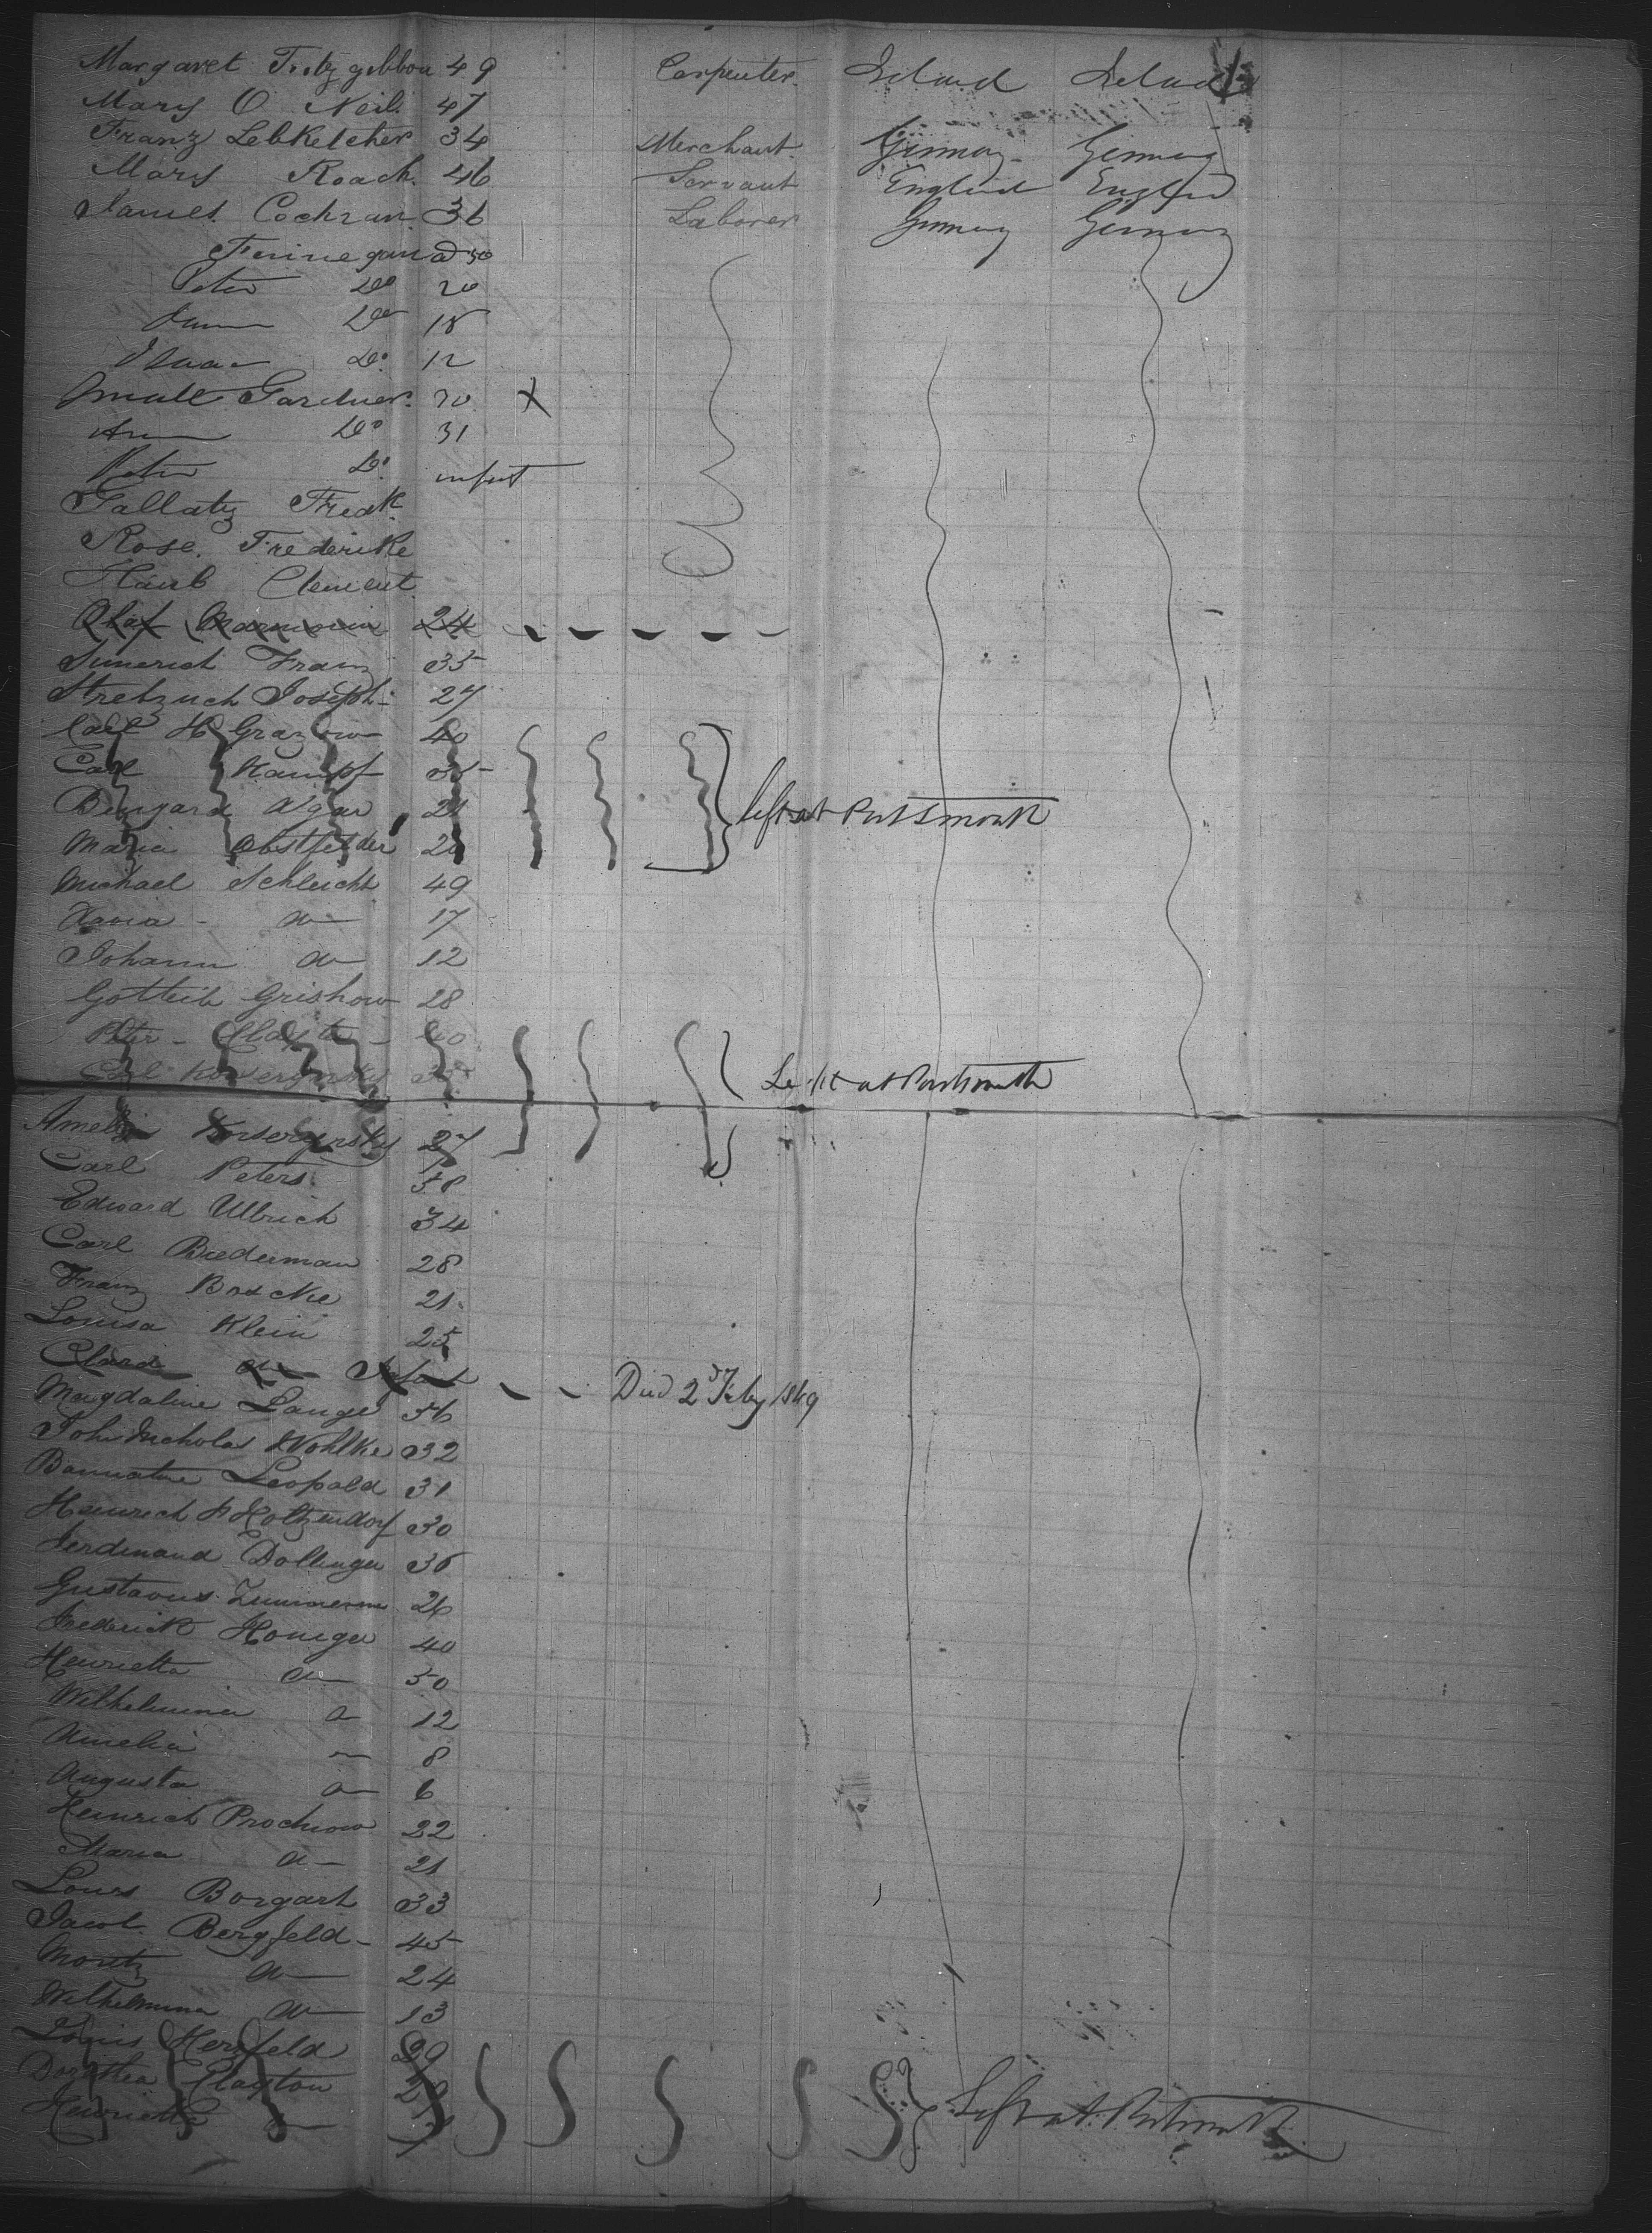 Margaret Fitzgibbon 49 Carpenter Ireland Ireland
Mary O Neil 47
Franz Lebketcher 34 Merchant Germany Germany
Mary Roach 46 Servant England England
James Cochran 36 Laborer Germany Germany
Finnegan 50
Peter Do 20
Do 18
Do 12
Gardner 30 X
Ann Do 31
Peter Do infant
Gallatz Fredk
Rose Frederike
Haub Clement
Olaf 24
Franz 35
Joseph 27
Carl H Grazow 40
Carl Kampf 35
21
left at Portsmouth
Maria Obstfelder 20
Michael Schleicht 49
do 17
Johann do 12
Gottlieb Grishow 28
Peter 40
Carl
Left at Portsmouth
Amelia 27
Carl Peters 58
Edward Ullrich 34
Carl Biederman 28
Franz 21
Louisa Klein 25
Clara do Infant Died 2d Feby 1849
Magdaline Lange 56
John Nicholas Wohlke 32
Leopold 31
Heinrich F Holtzendorf 30
Ferdinand Dollinger 36
Gustavus Zimmerman 26
Frederick Honiger 40
Henrietta do 50
Wilhelmina do 12
Amelia do 8
Augusta do 6
Heinrich Prochnow 22
Maria do 21
Louis Borgart 33
Jacob Bergfeld 45
Moritz do 24
Wilhelmina do 13
Louis Hersfeld 29
Dorothea Clayton 29
Henriette do
Left at Portsmouth